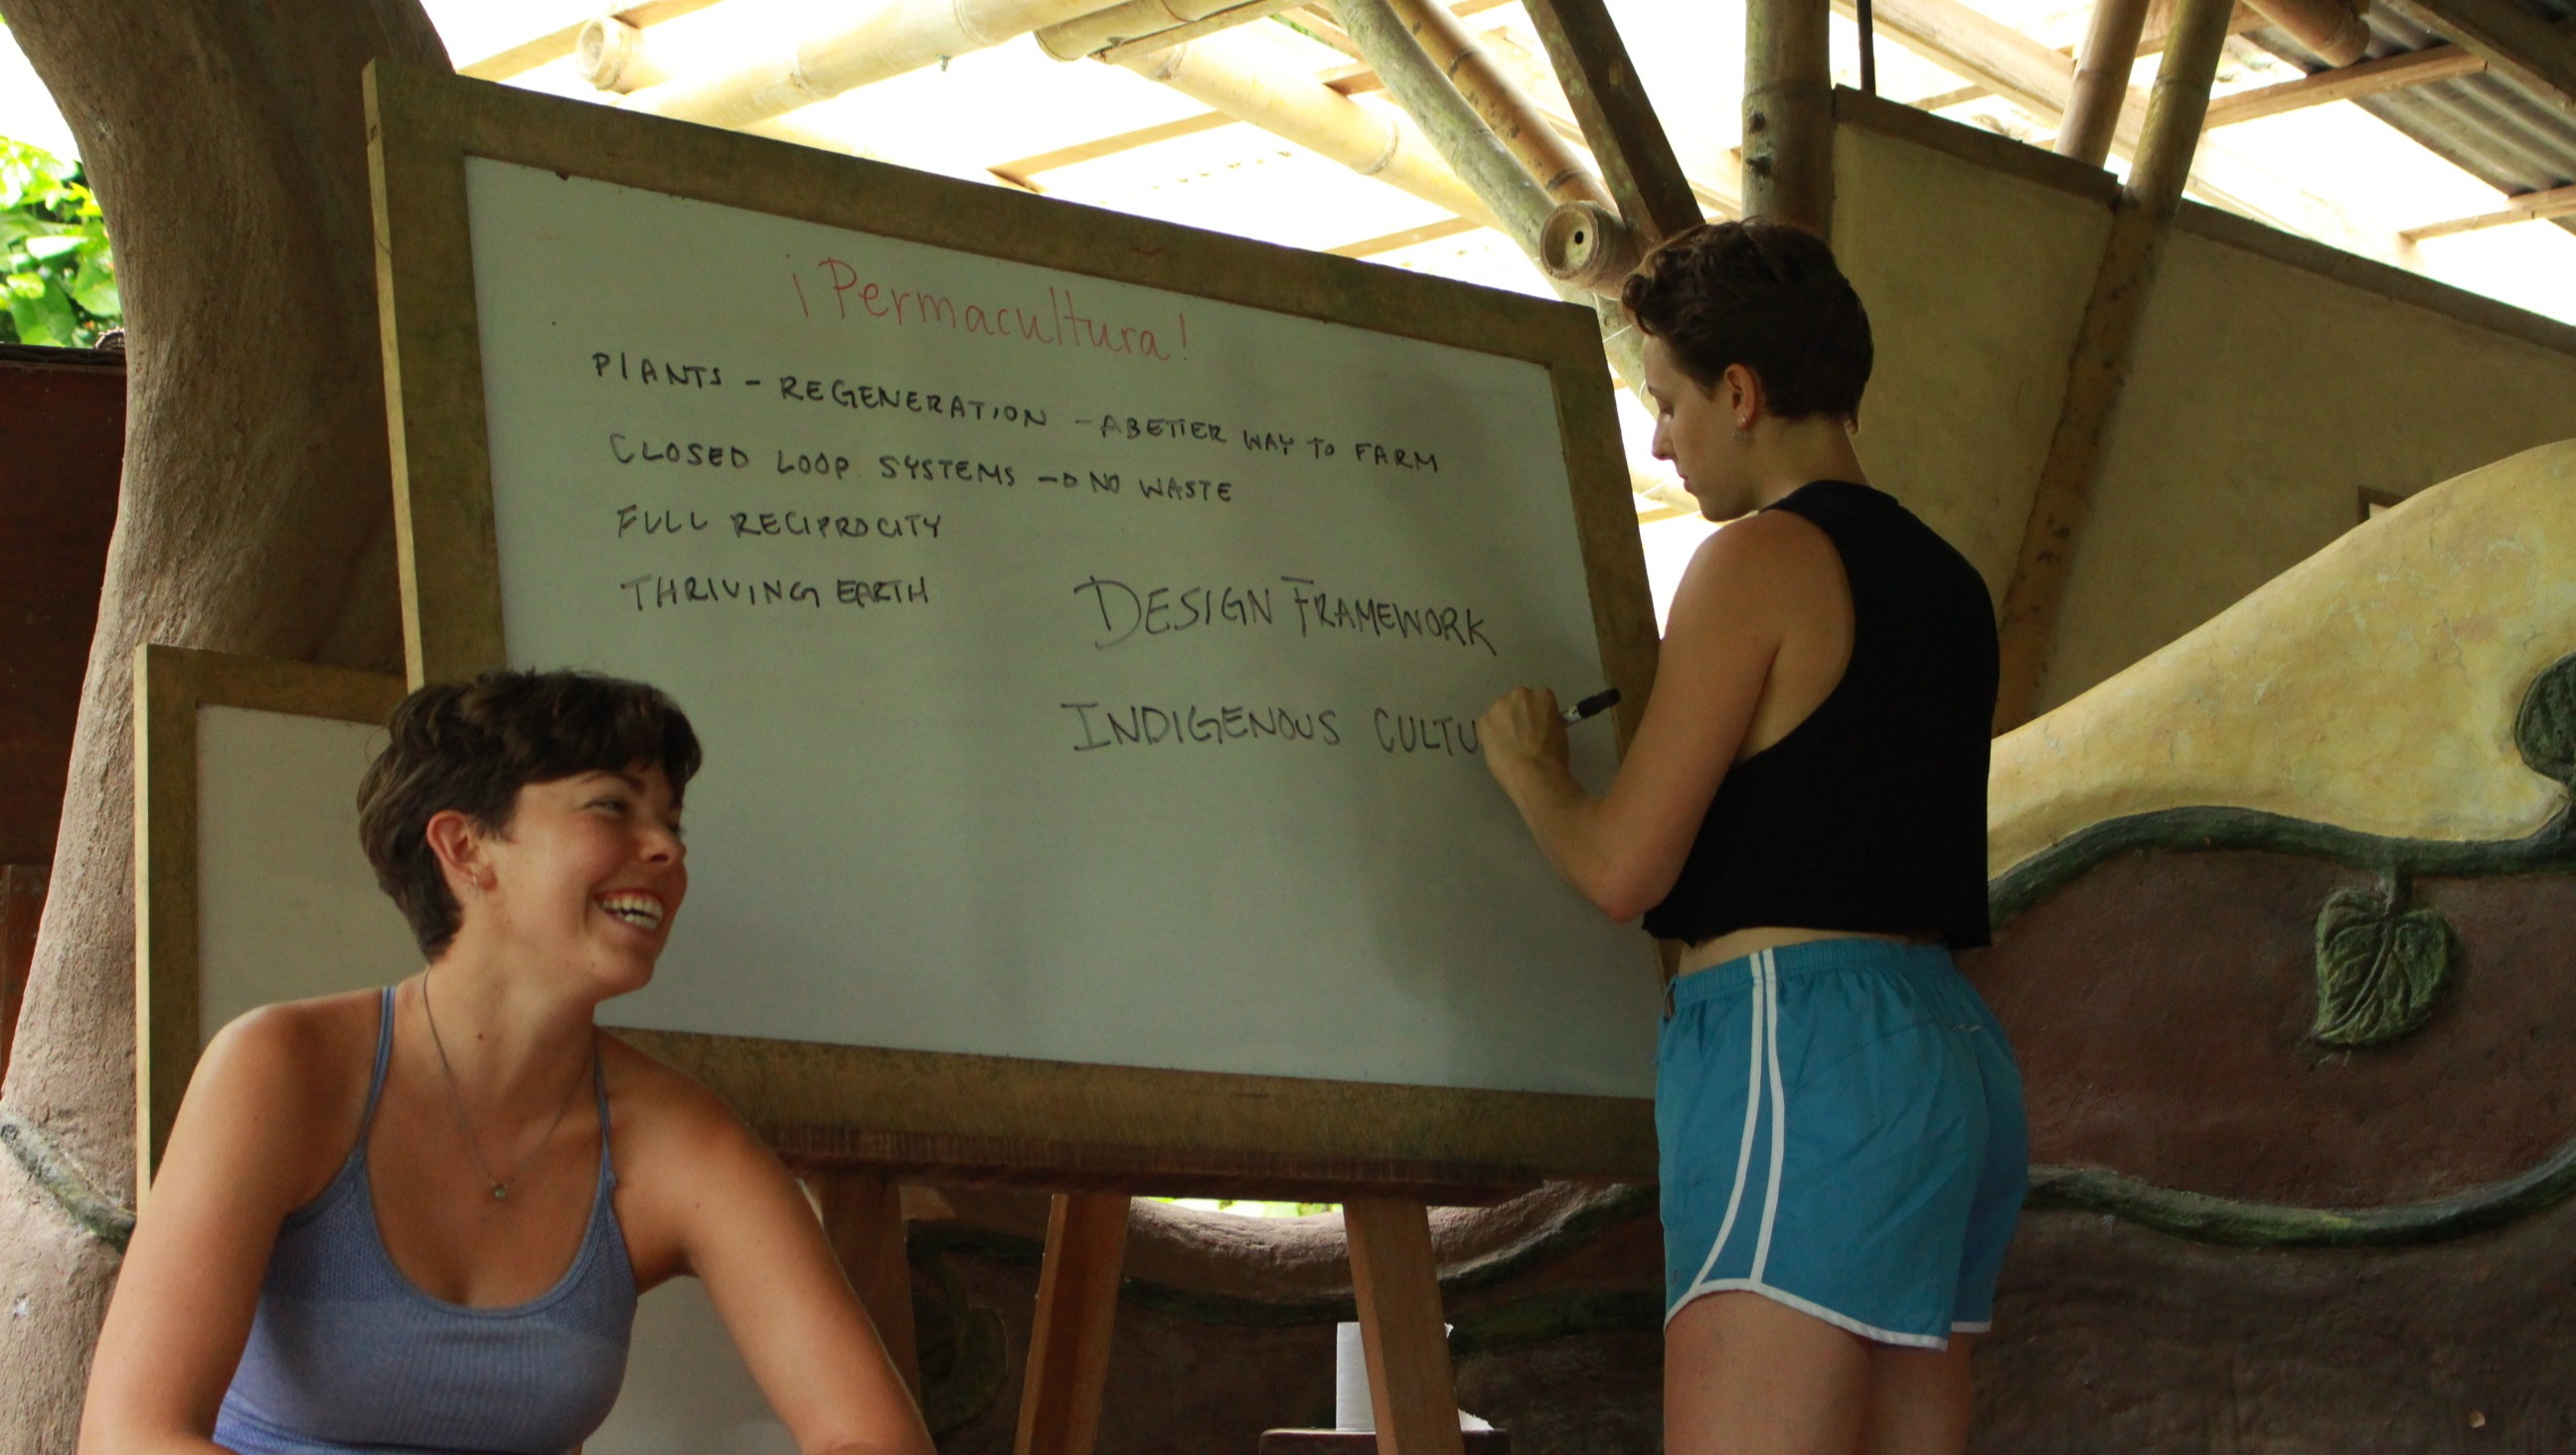 ¡Permacultura!
PLANTS - REGENERATION - A BETTER WAY TO FARM
CLOSED LOOP SYSTEMS → NO WASTE
FULL RECIPROCITY
THRIVING EARTH
DESIGN FRAMEWORK
INDIGENOUS CULTU